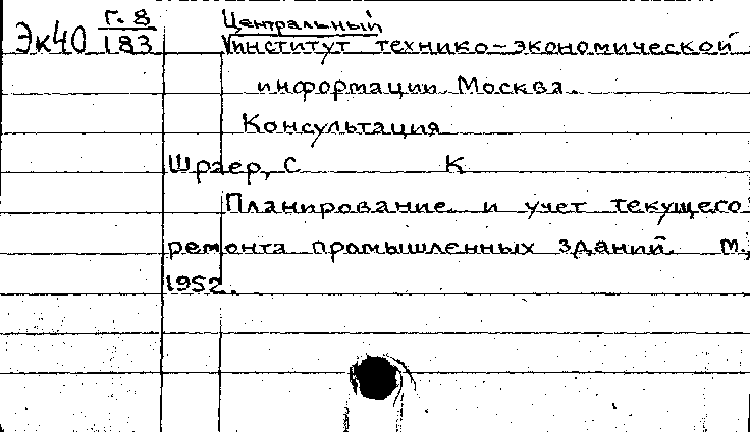 Эк40 Г. 8
183
Центральный
институт технико-экономической
информации Москва.
Консультация
Шраер, С К
Планирование и учет текущего
ремонта промышленных зданий. М.,
1952.